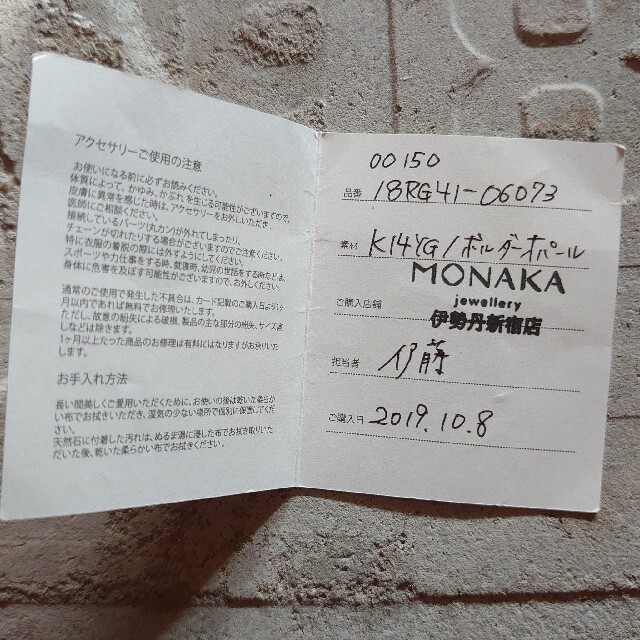 アクセサリーご使用の注意
お使いになる前に必ずお読みください。
体質によって、かゆみ、かぶれを生じる可能性がございますので、
皮膚に異常を感じた時は、アクセサリーをお外しいただき、
医師にご相談ください。
接続しているパーツ(丸カン)が外れてしまったり、
チェーンが切れたりする場合がございますのでご注意ください。
特に衣服の着脱の際には外すようにしてください。
スポーツや力仕事をする時、就寝時、幼児の世話をする際などは、
身体に危害を及ぼす可能性がございますので、お外しください。
通常のご使用で発生した不具合は、カード記載のご購入日より1ヶ
月以内であれば無料でお修理いたします。
ただし、故意の紛失による破損、製品の主な部分の紛失、サイズ直
しなどは除きます。
1ヶ月以上たった商品のお修理は有料にはなりますがお承りいた
します。
お手入れ方法
長い間美しくご愛用いただくために、お使いの後は乾いた柔らか
い布でお拭きいただき、湿気の少ない場所で個別に保管してくだ
さい。
天然石に付着した汚れは、ぬるま湯に浸した布でお拭き取りいた
だいた後、乾いた柔らかい布でお拭きください。
00150
品番 18RG41-06073
素材 K14YG/ボルダーオパール
MONAKA
jewellery
ご購入店舗 伊勢丹新宿店
担当者 伊藤
ご購入日 2019.10.8